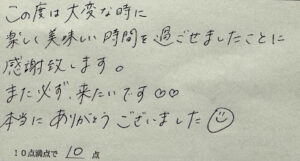 この度は大変な時に
楽しく美味しい時間を過ごせましたことに
感謝致します。
また必ず、来たいです♡♡
本当にありがとうございました☺
10点満点で 10 点